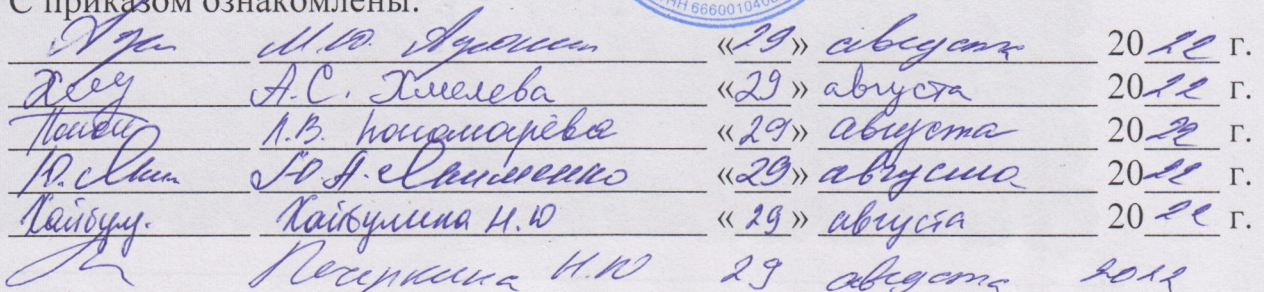 С приказом ознакомлены:
ИНН 6660010406
М.Ю. «29» августа 2022 г.
А.С. Хмелева «29» августа 2022 г.
Л.В. Пономарёва «29» августа 2022 г.
Ю.А. «29» августа 2022 г.
Хайбул. Хайбулина Н.Ю «29» августа 2022 г.
Печеркина Н.Ю 29 августа 2022